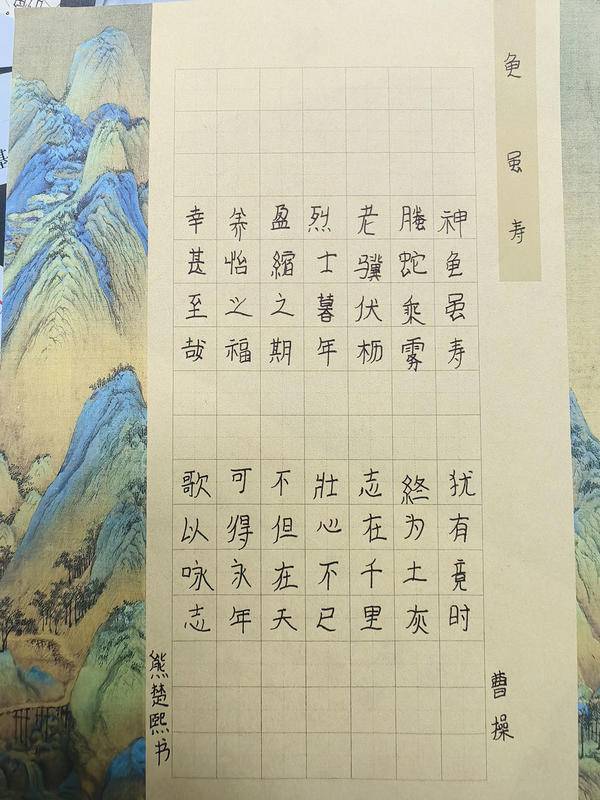 龟虽寿
曹操
神龟虽寿 犹有竟时
螣蛇乘雾 終为土灰
老骥伏枥 志在千里
烈士暮年 壯心不已
盈縮之期 不但在天
养怡之福 可得永年
幸甚至哉 歌以咏志
熊楚熙书